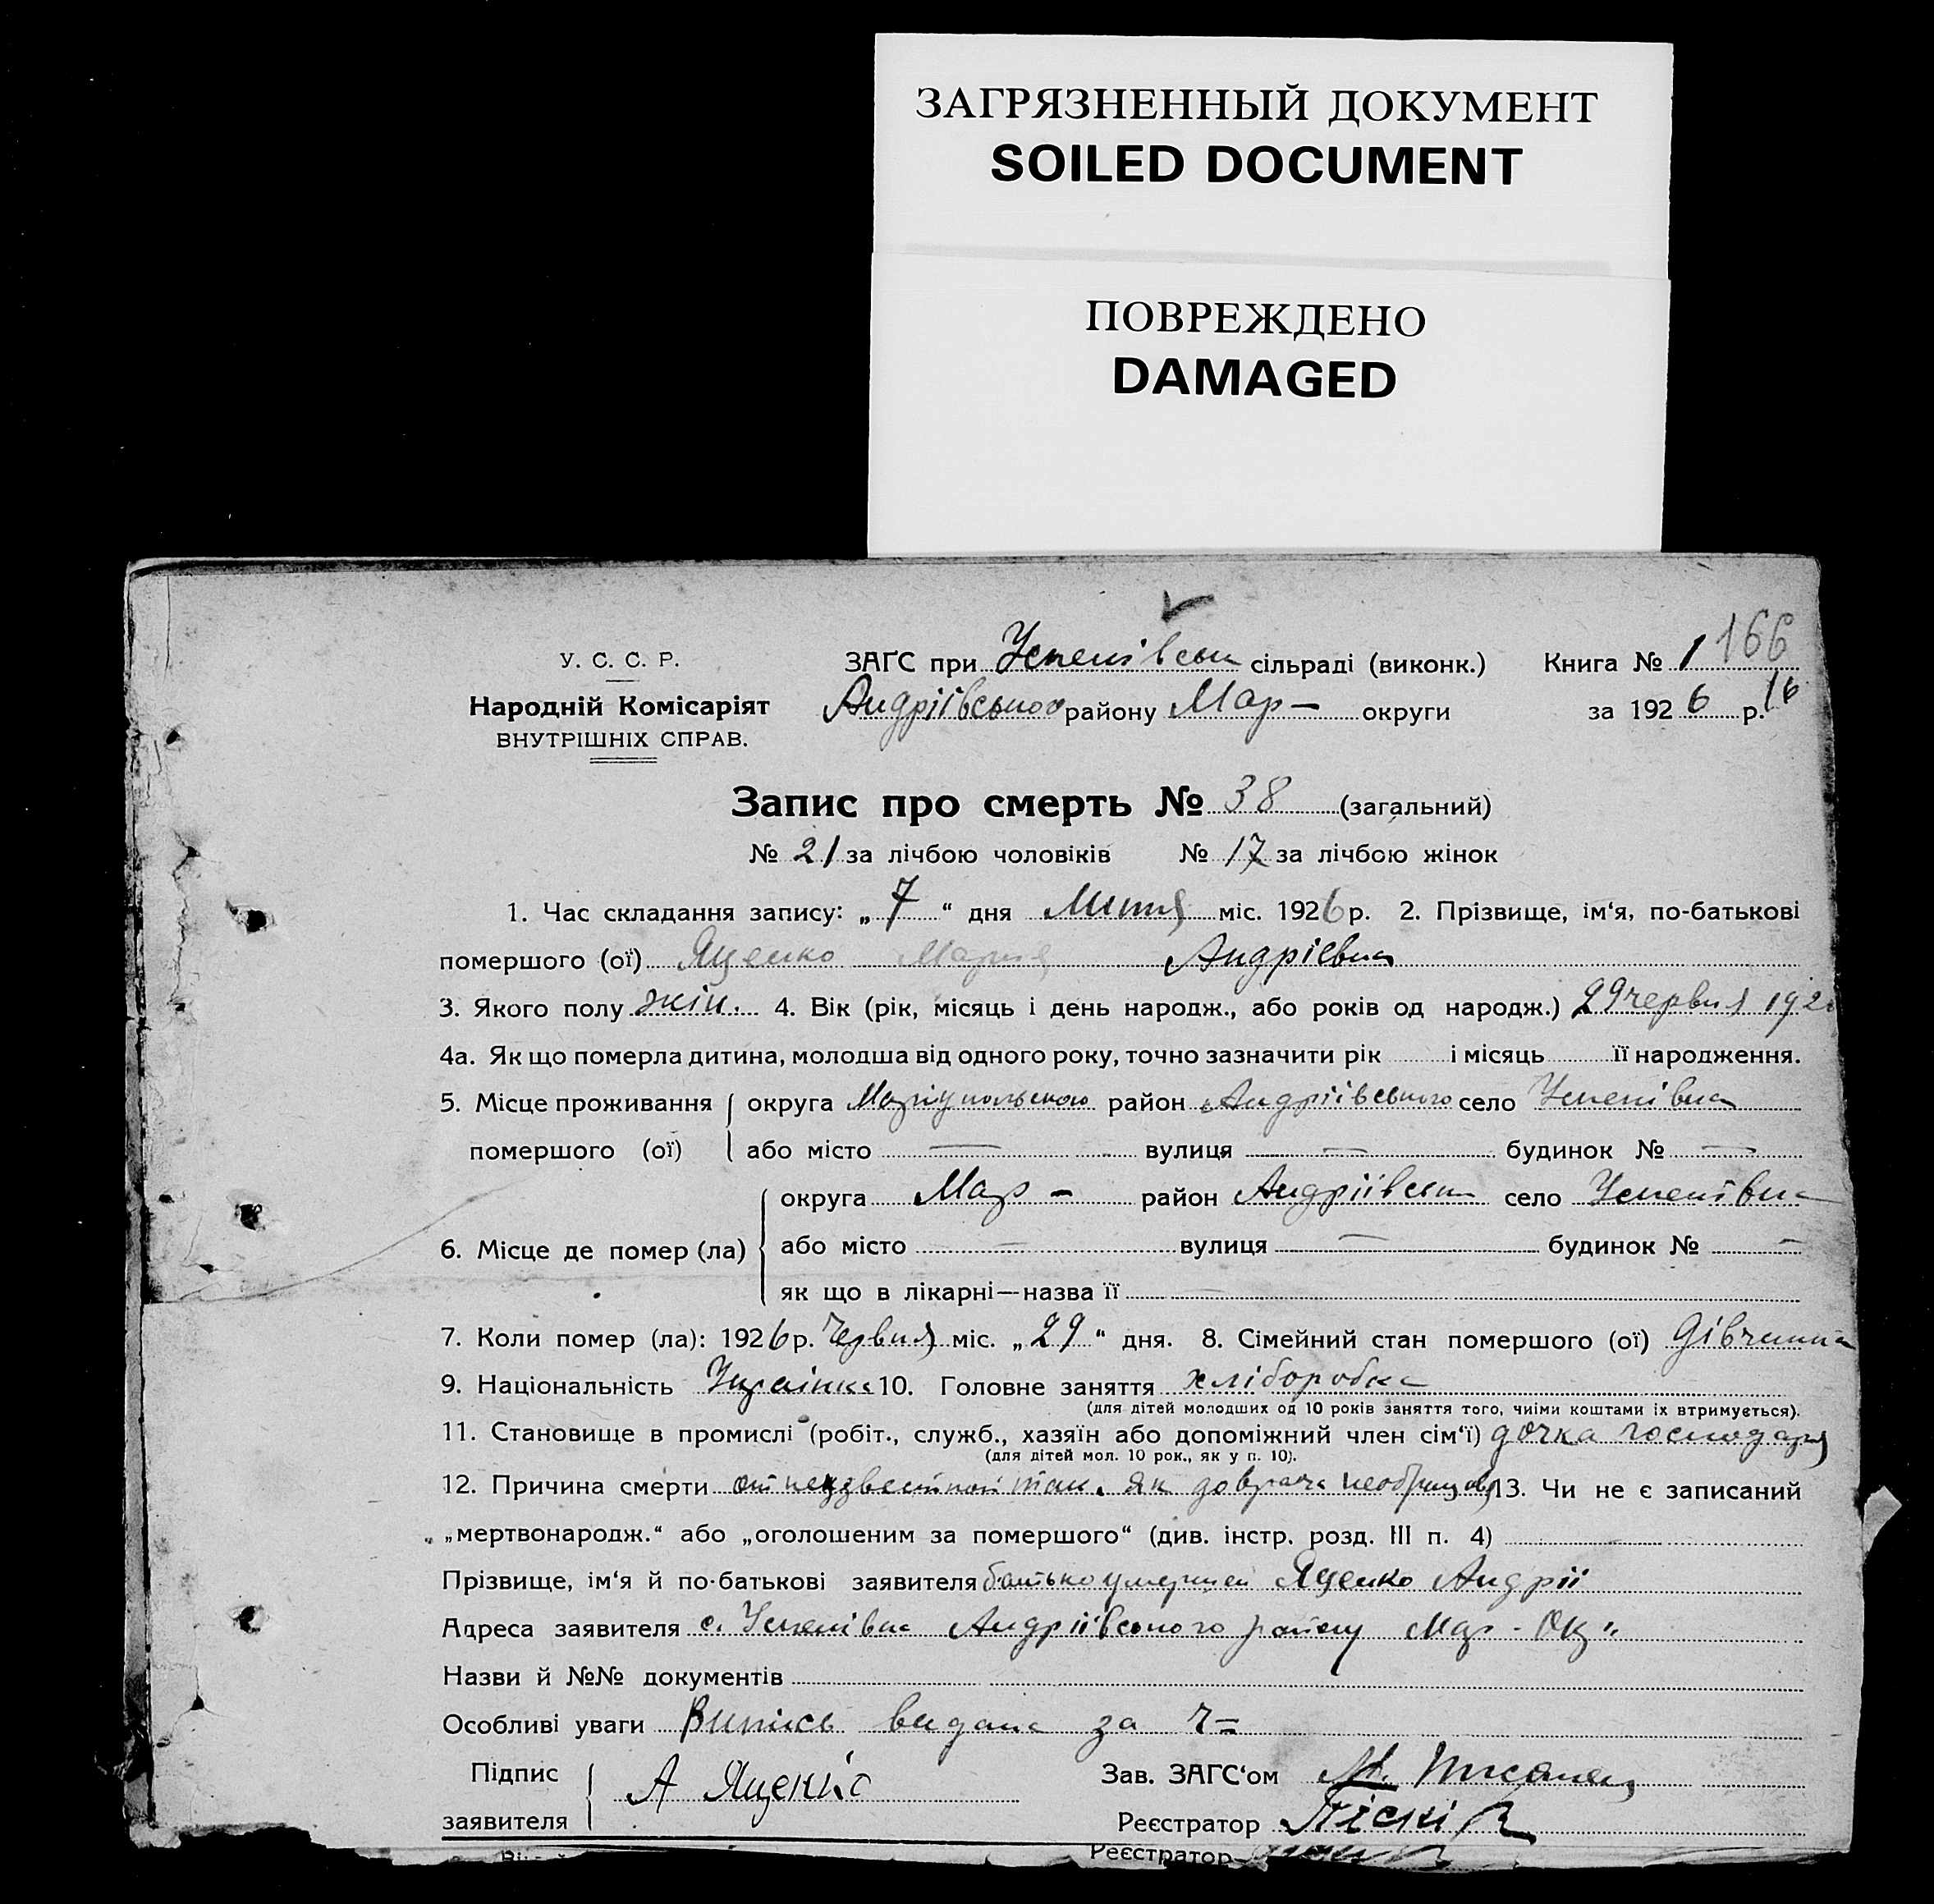 ЗАГРЯЗНЕННЫЙ ДОКУМЕНТ
SOILED DOCUMENT
ПОВРЕЖДЕНО
DAMAGED
166
У. С. С. Р. ЗАГС при Успенівськ сільраді (виконк.) Книга № 1
Народній Комісаріят Андріївського району Мар- округи за 1926 р. 16
ВНУТРІШНІХ СПРАВ.
Запис про смерть № 38 (загальний)
№ 21 за лічбою чоловіків № 17 за лічбою жінок
1. Час складання запису: „7“ дня Липня міс. 1926 р. 2. Прізвище, ім‘я, по-батькові
помершого (ої) Яценко Мария Андрієвна
3. Якого полу жін. 4. Вік (рік, місяць і день народж., або років од народж.) 29 червня 192
4а. Як що померла дитина, молодша від одного року, точно зазначити рік і місяць її народження.
5. Місце проживання округа Маріупольською район Андріівського село Успенівка
помершого (ої) або місто — вулиця — будинок № —
округа Мар - район Андріївськ село Успенівка
6. Місце де помер (ла) або місто — вулиця — будинок № —
як що в лікарні—назва її —
7. Коли помер (ла): 1926 р. Червня міс. „29“ дня. 8. Сімейний стан помершого (ої) дівчинка
9. Національність Українка 10. Головне заняття хліборобка
(для дітей молодших од 10 років заняття того, чиїми коштами їх втримується).
11. Становище в промислі (робіт., служб., хазяїн або допоміжний член сім‘ї) дочка господаря
(для дітей мол. 10 рок., як у п. 10).
12. Причина смерти от неизвестной так як до врача 13. Чи не є записаний
„мертвонародж.“ або „оголошеним за помершого“ (див. інстр. розд. III п. 4)
Прізвище, ім‘я й по-батькові заявителя батько умершей Яценко Андрій
Адреса заявителя с. Успенівка Андріівського району Мар - Ок
Назви й №№ документів
Особливі уваги Випись видана за
Підпис А Яценко Зав. ЗАГС‘ом
заявителя Реєстратор
Реєстратор